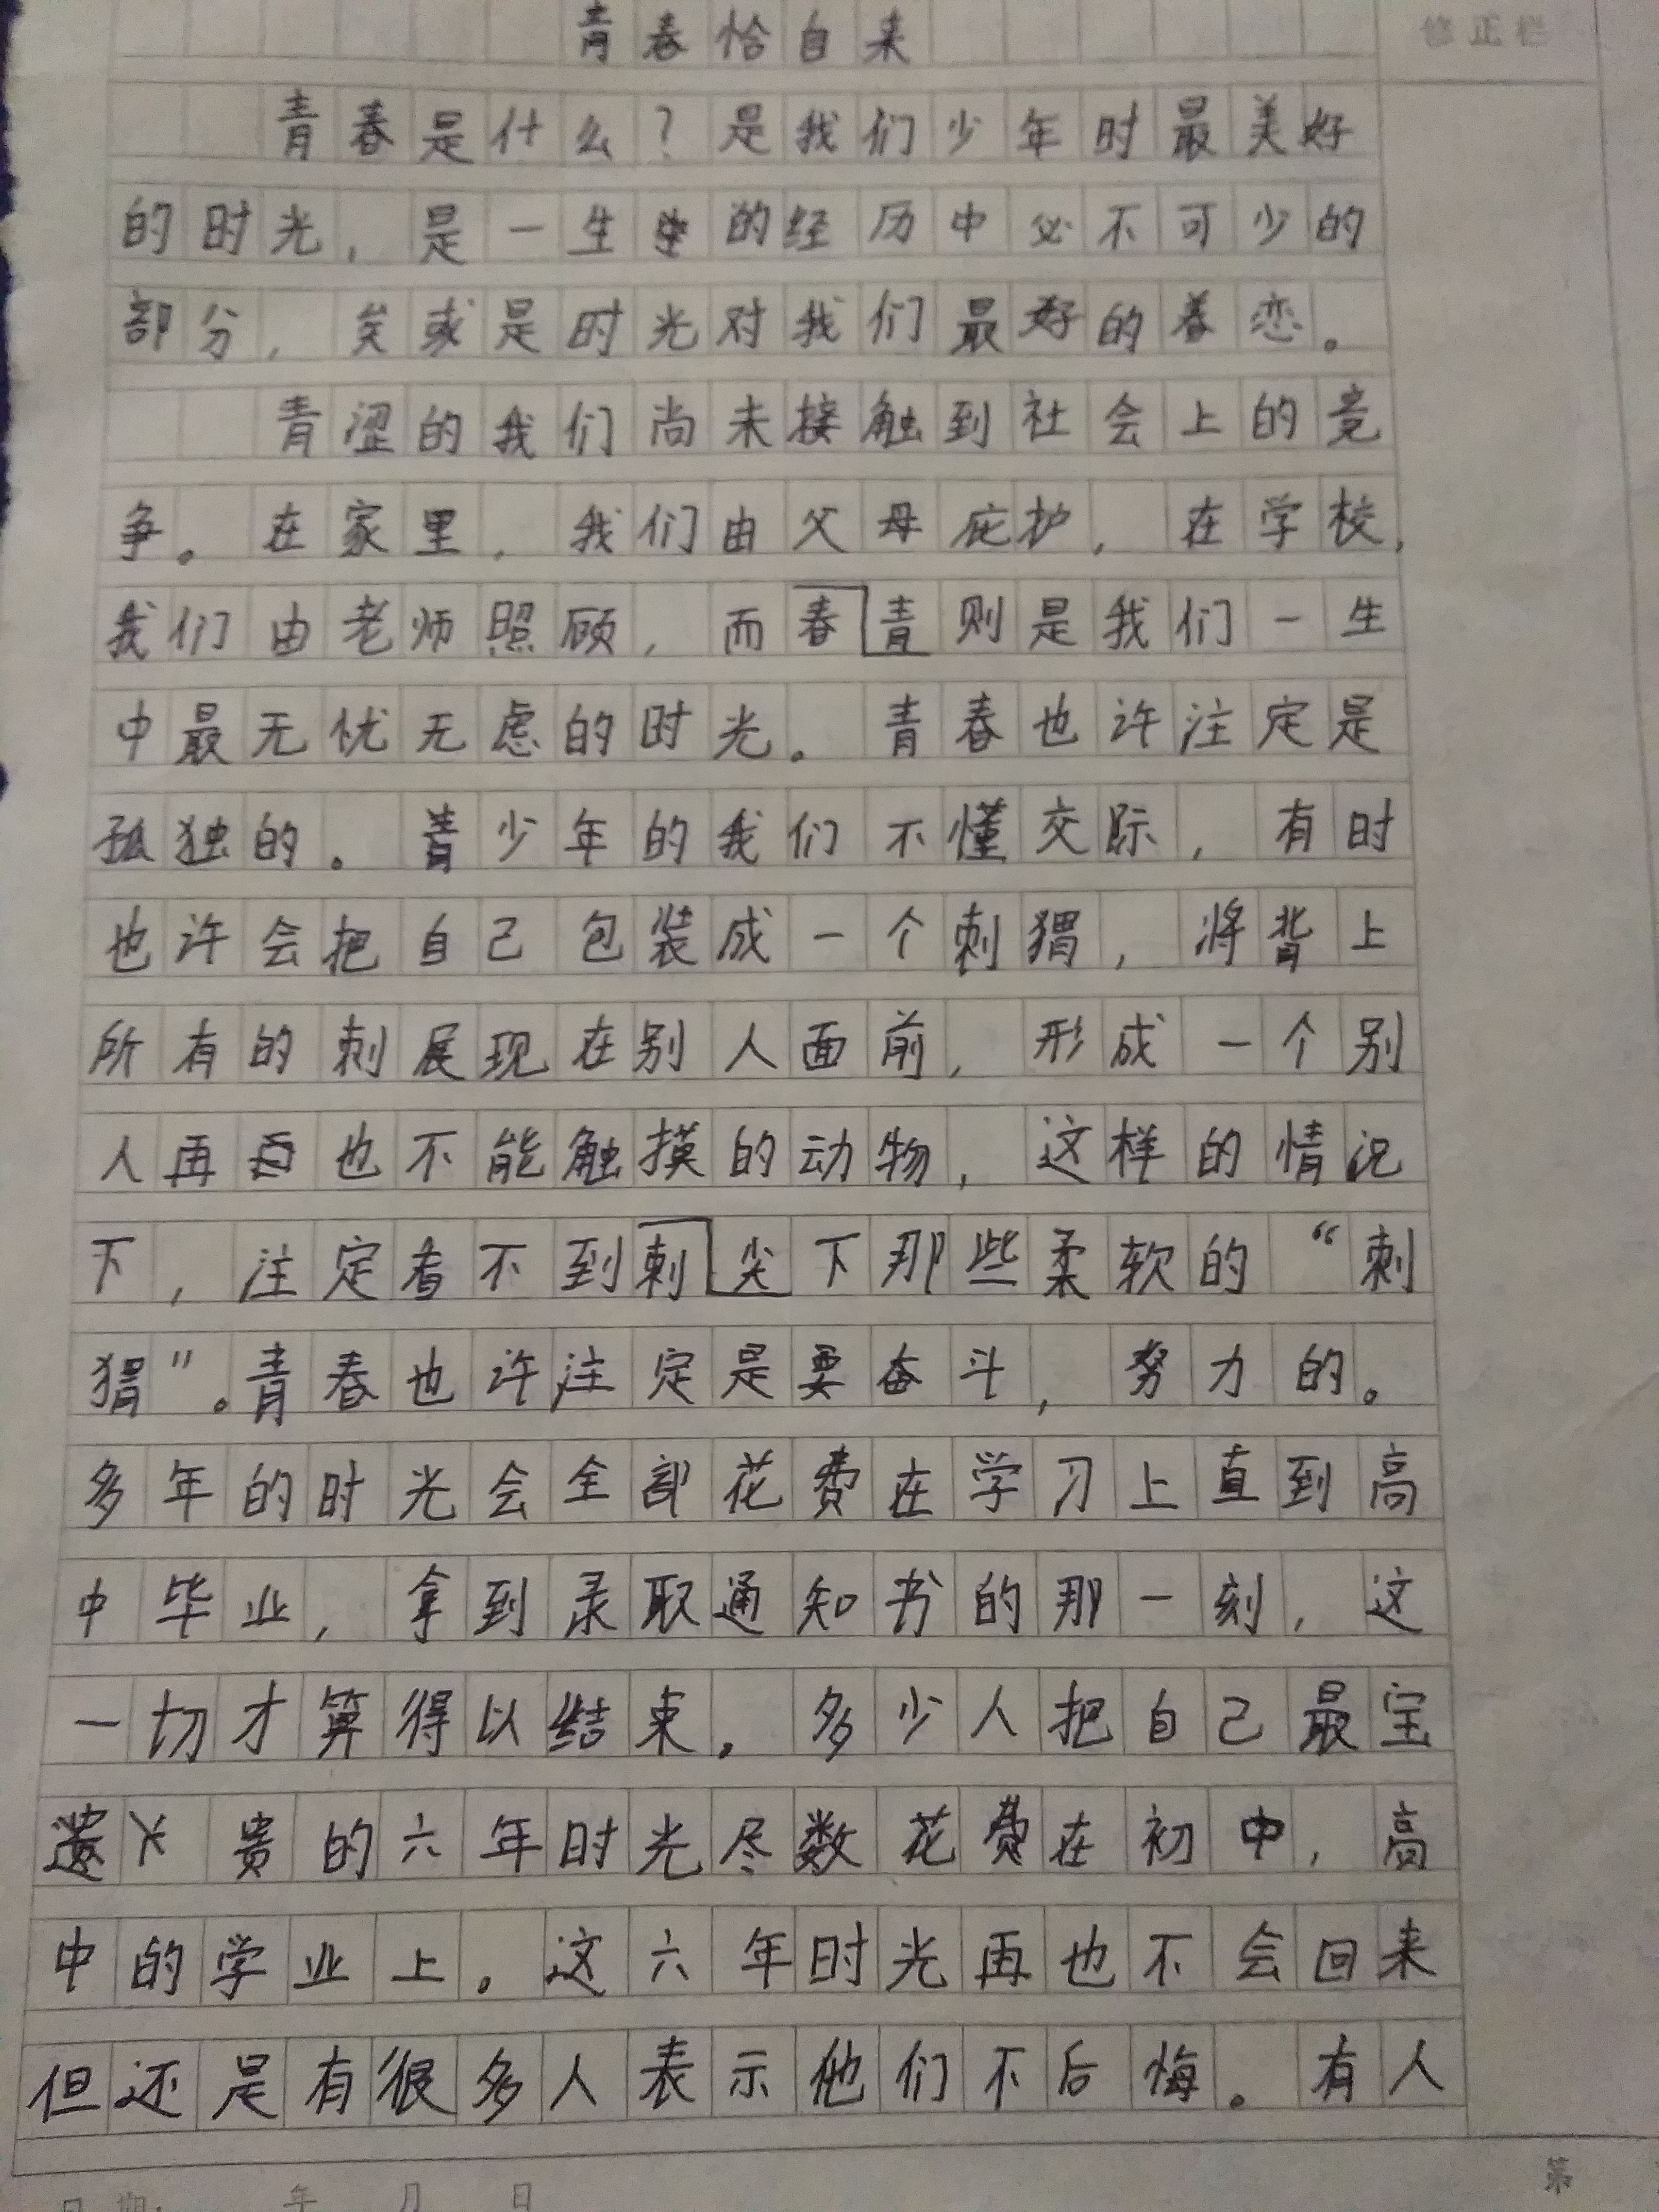 青春恰自来
修正栏
青春是什么？是我们少年时最美好
的时光，是一生的经历中必不可少的
部分，矣或是时光对我们最好的眷恋。
青涩的我们尚未接触到社会上的竞
争。在家里，我们由父母庇护，在学校，
我们由老师照顾，而春青则是我们一生
中最无忧无虑的时光。青春也许注定是
孤独的。青少年的我们不懂交际，有时
也许会把自己包装成一个刺猬，将背上
所有的刺展现在别人面前，形成一个别
人再也不能触摸的动物，这样的情况
下，注定看不到刺尖下那些柔软的“刺
猬”。青春也许注定是要奋斗，努力的。
多年的时光会全部花费在学习上直到高
中毕业，拿到录取通知书的那一刻，这
一切才算得以结束。多少人把自己最宝
贵的六年时光尽数花费在初中，高
中的学业上。这六年时光再也不会回来
但还是有很多人表示他们不后悔。有人
日期： 年 月 日
第